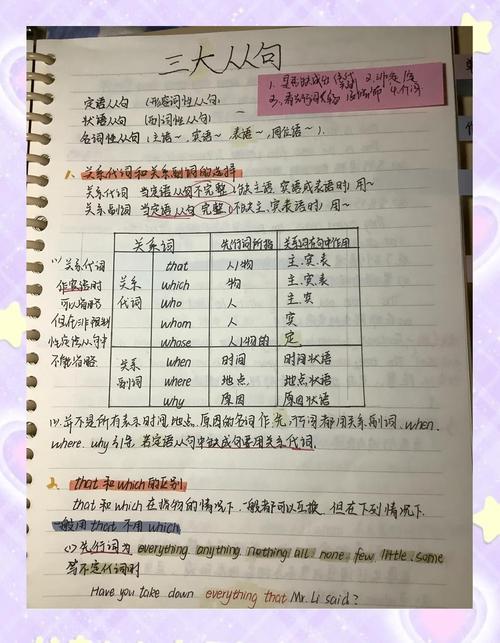 三大从句
1. 是否缺成分 2. 非定/定
3. 看先行词人/物 4. 介词
定语从句 (形容词性从句)
状语从句 (副词性从句)
名词性从句 (主语~, 宾语~, 表语~, 同位语~).
一、关系代词和关系副词的选择
关系代词 当定语从句不完整 (缺主语.宾语或表语时) 用~
关系副词 当定语从句 完整 (不缺主.宾表语时) 用~
(1) 关系代词
作宾语时
可以省略
但在非限制
性定语从句中
不能省略
关系词 先行词所指 关系词在句中作用
关系代词
that 人\物 主.宾.表
which 物 主.宾.表
who 人 主.宾
whom 人 宾
whose 人\物的 定
关系副词
when 时间 时间状语
where 地点 地点状语
why 原因 原因状语
(2) 并不是所有表示时间.地点.原因的名词作先行词都用关系副词 when.
where. why 引导, 若定语从句中缺成分要用关系代词.
2. that 和 which 的区别
that 和 which 在指物的情况下一般都可以互换. 但在下列情况下.
一般用 that 不用 which
(1) 先行词为 everything anything nothing all none few little some
等不定代词时
Have you take down everything that Mr. Li said?